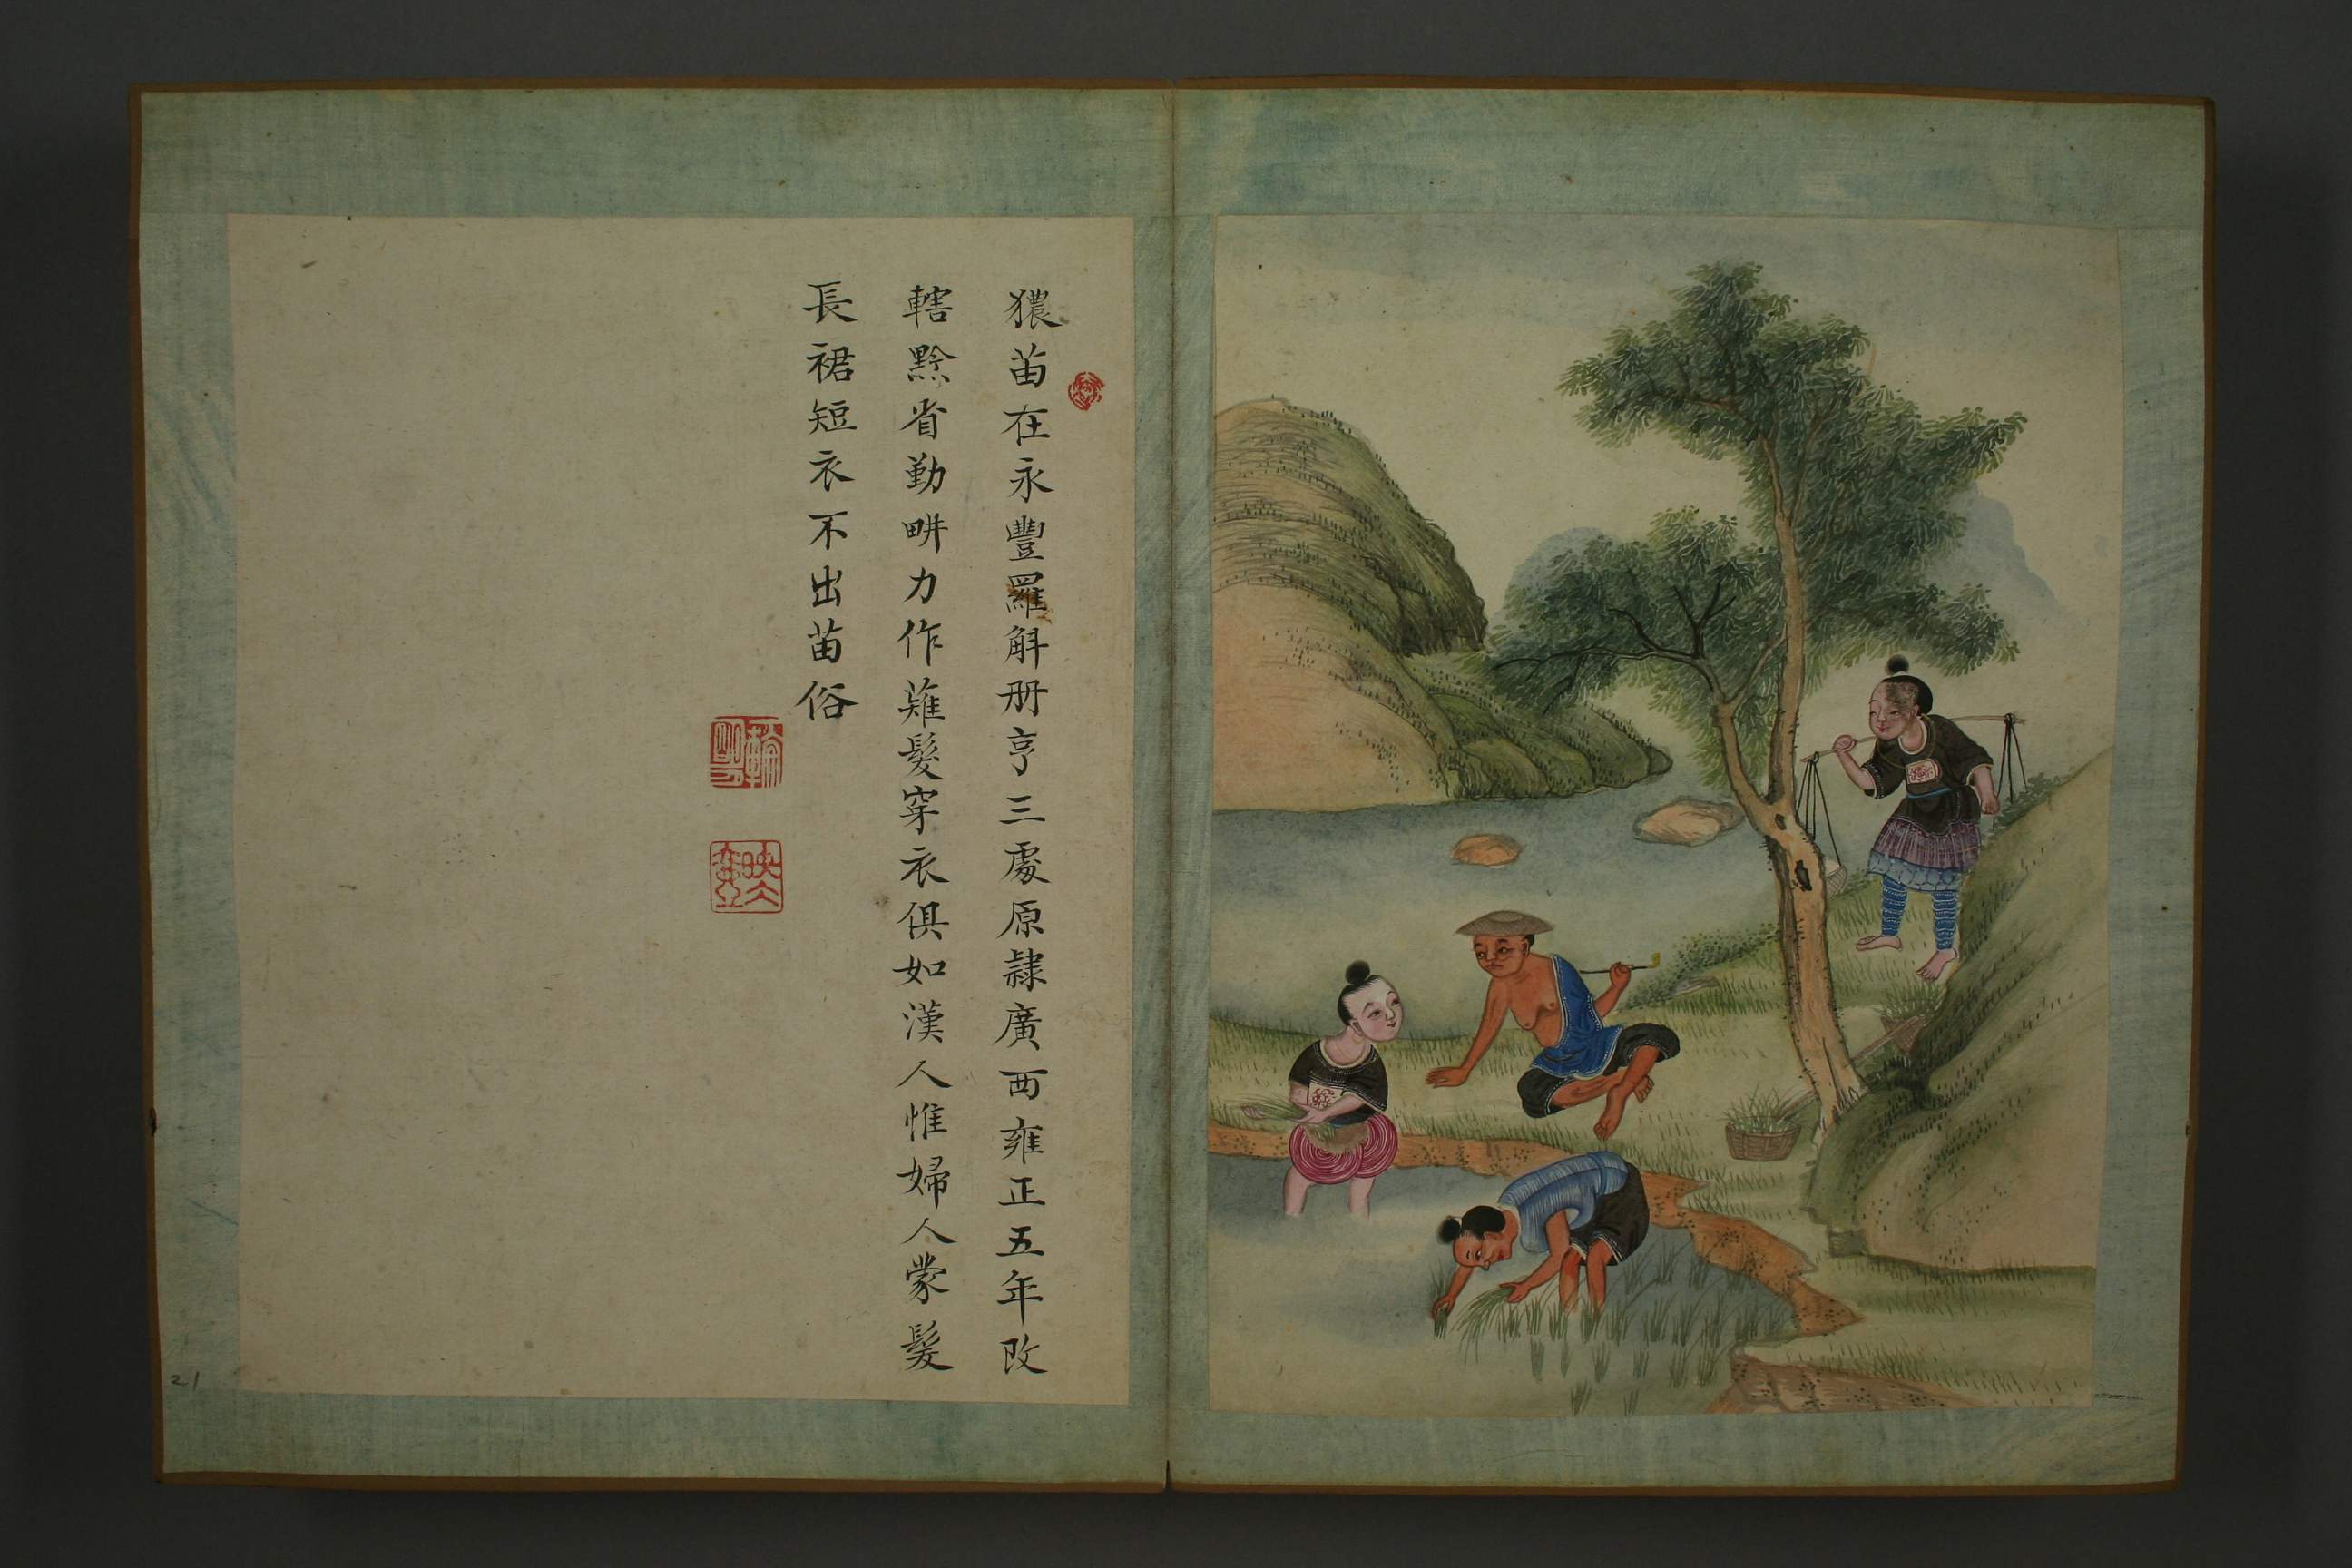 獽苗在永豐羅斛册亨三處原隸廣西雍正五年改
轄黔省勤畊力作薙髮穿衣俱如漢人惟婦人蒙髮
長裙短衣不出苗俗
21